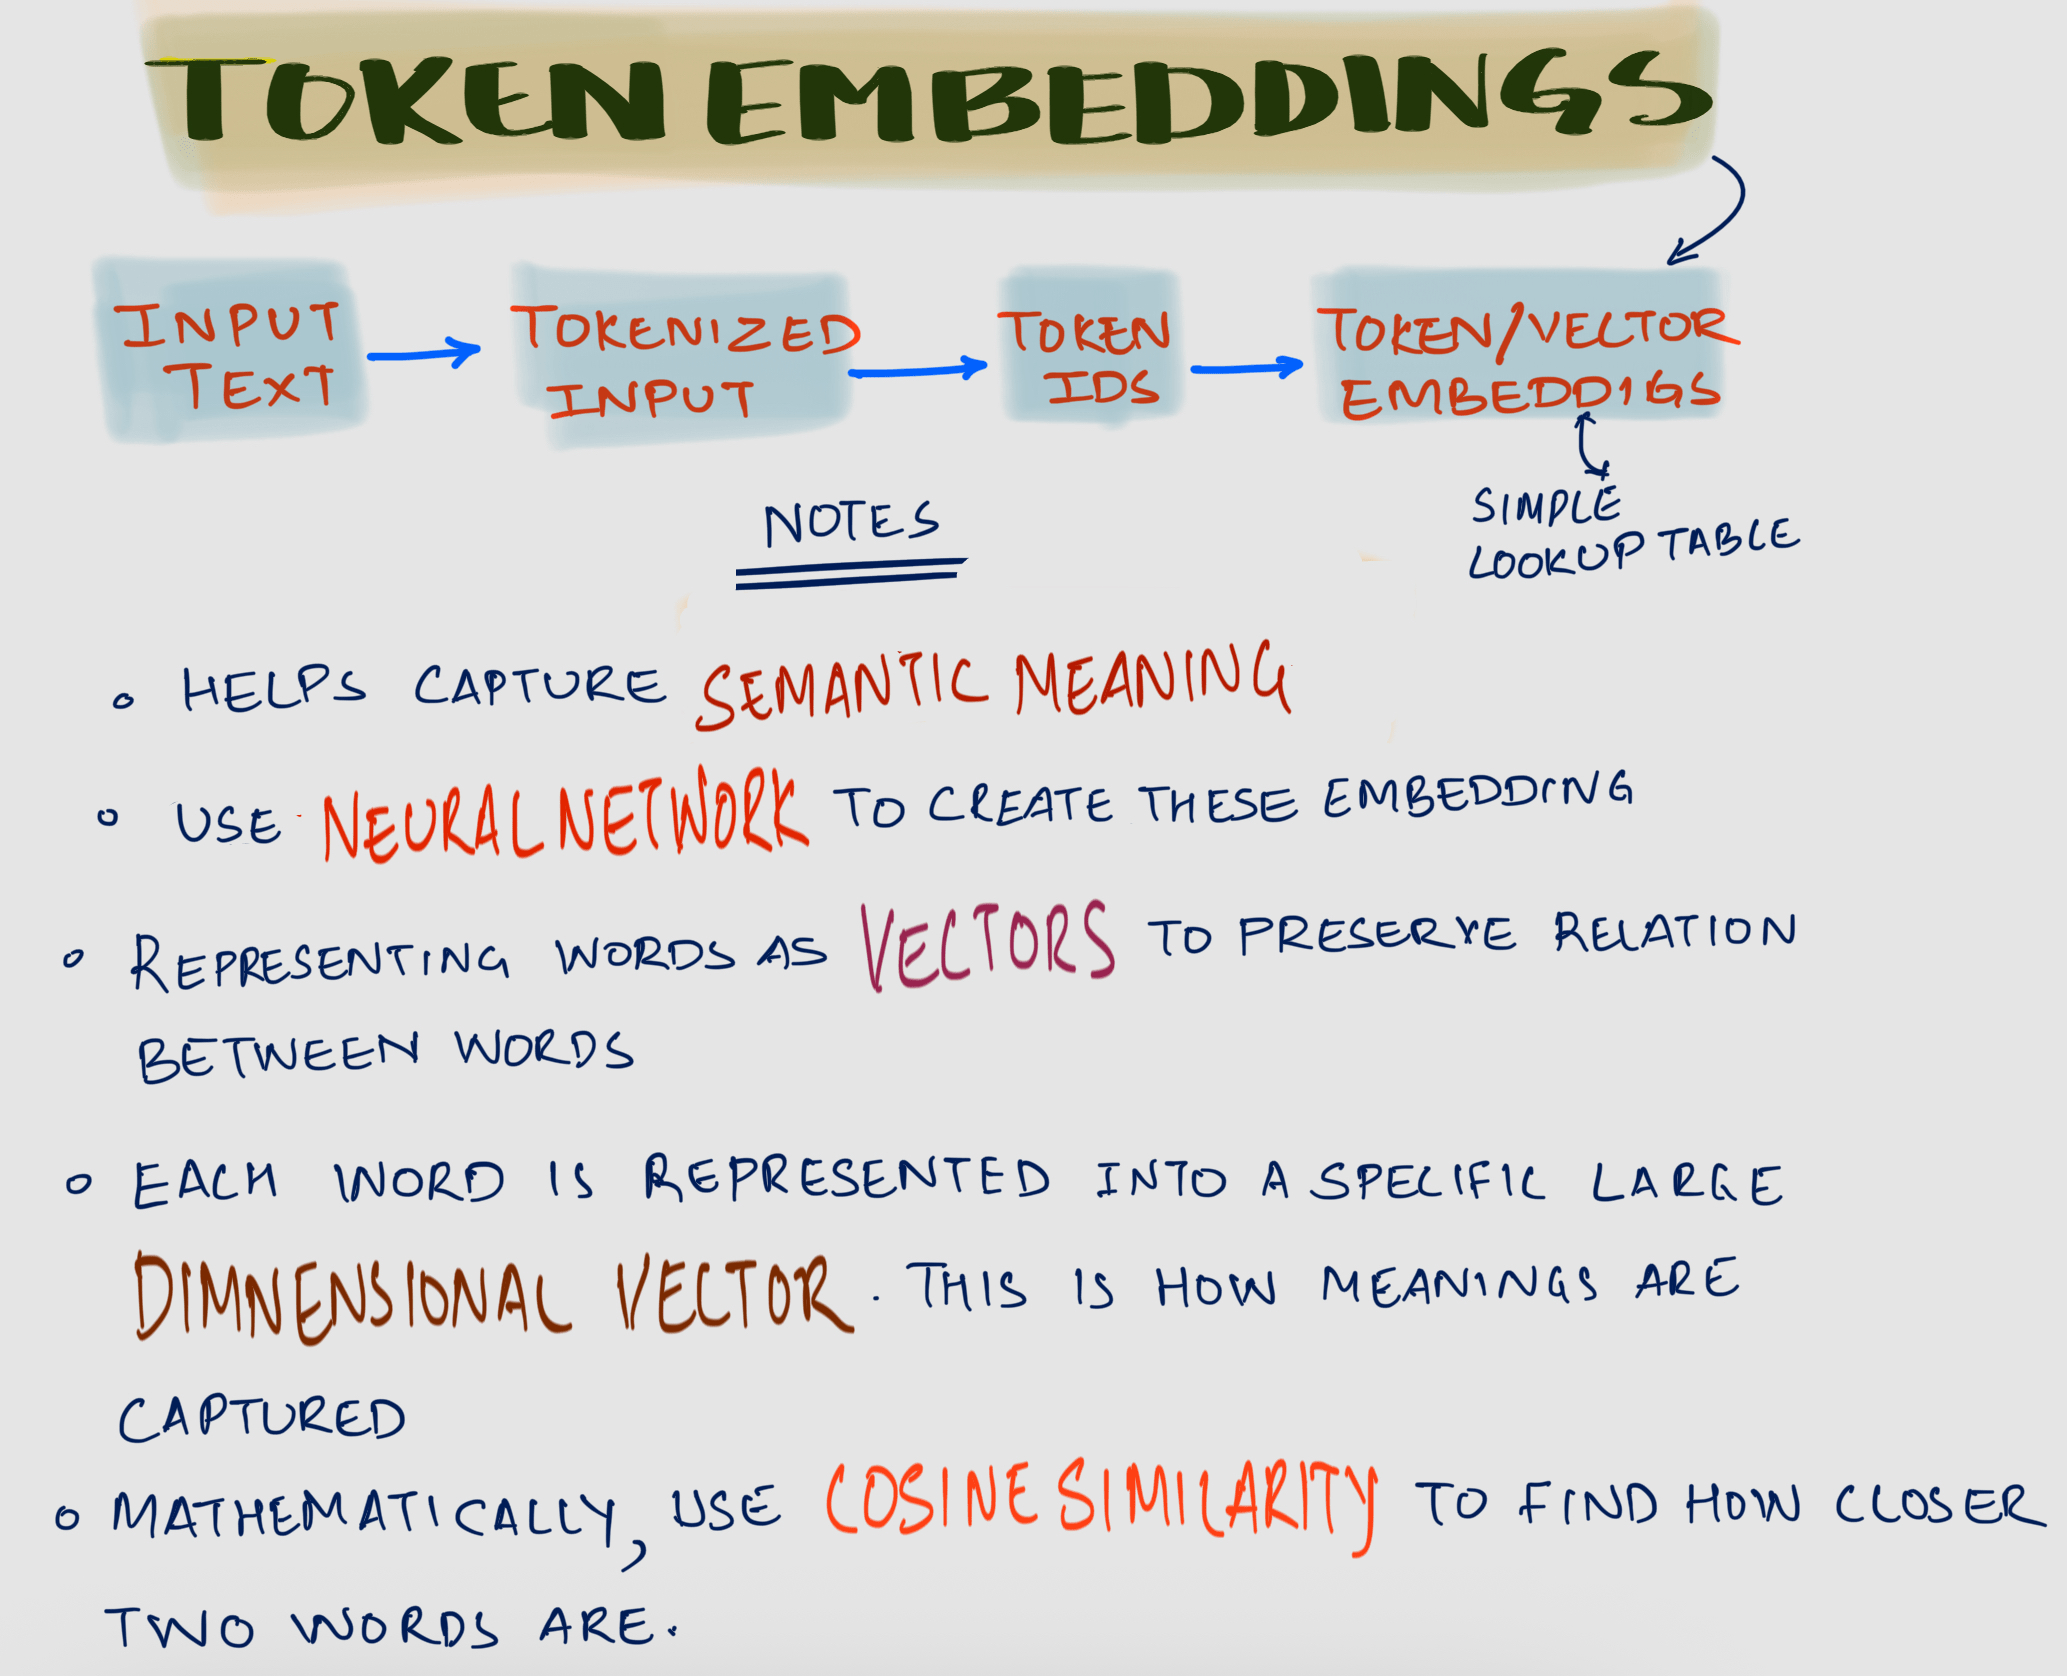 TOKEN EMBEDDINGS
INPUT
TEXT
TOKENIZED
INPUT
TOKEN
IDS
TOKEN/VECTOR
EMBEDDIGS
SIMPLE
LOOKUP TABLE
NOTES
HELPS CAPTURE SEMANTIC MEANING
USE NEURAL NETWORK TO CREATE THESE EMBEDDING
REPRESENTING WORDS AS VECTORS TO PRESERVE RELATION
BETWEEN WORDS
EACH WORD IS REPRESENTED INTO A SPECIFIC LARGE
DIMNENSIONAL VECTOR. THIS IS HOW MEANINGS ARE
CAPTURED
MATHEMATICALLY, USE COSINE SIMILARITY TO FIND HOW CLOSER
TWO WORDS ARE.